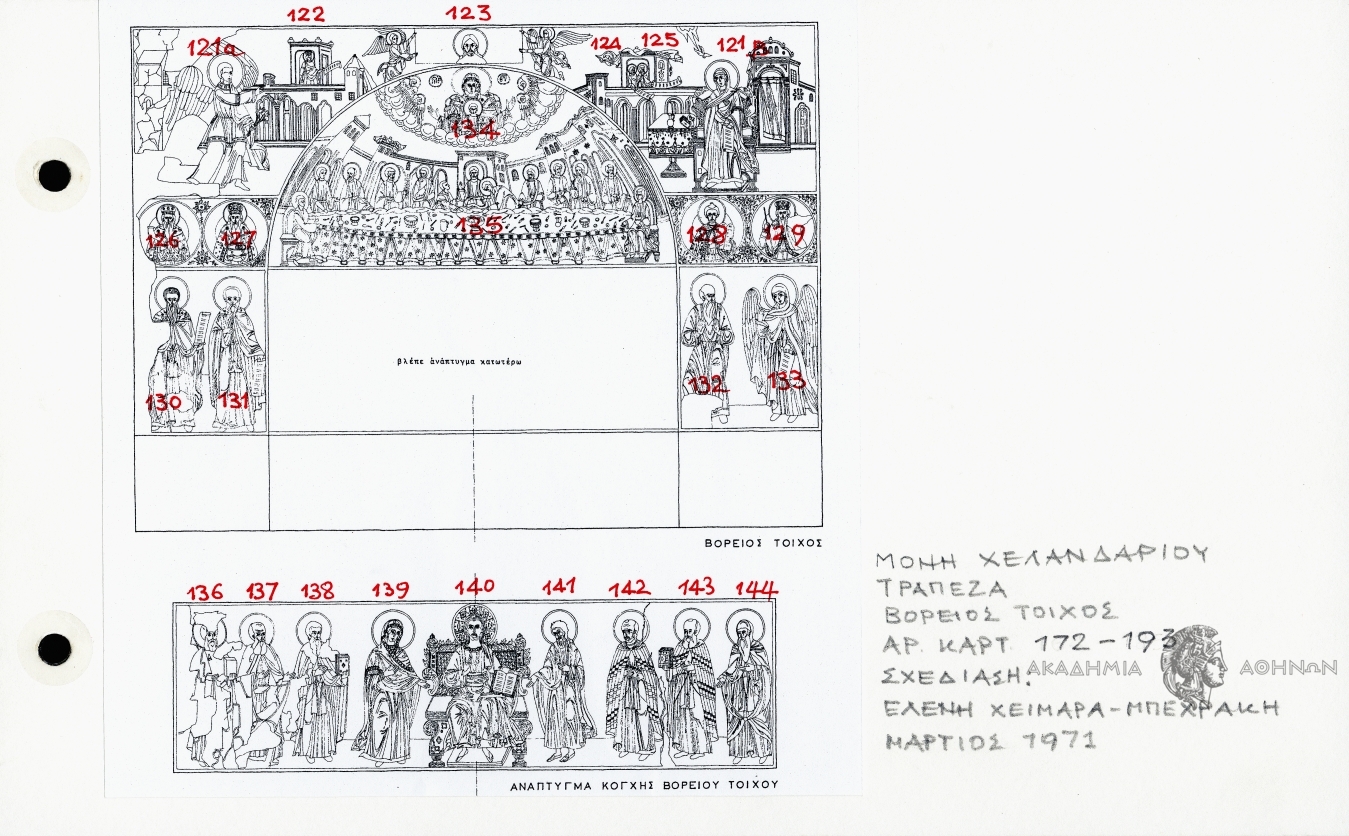 122 123
121α 124 125 121β
134
135
126 127 128 129
130 131 132 133
βλέπε ἀνάπτυγμα κατωτέρω
ΒΟΡΕΙΟΣ ΤΟΙΧΟΣ
136 137 138 139 140 141 142 143 144
ΑΝΑΠΤΥΓΜΑ ΚΟΓΧΗΣ ΒΟΡΕΙΟΥ ΤΟΙΧΟΥ
ΜΟΝΗ ΧΕΛΑΝΔΑΡΙΟΥ
ΤΡΑΠΕΖΑ
ΒΟΡΕΙΟΣ ΤΟΙΧΟΣ
ΑΡ. ΚΑΡΤ. 172-193
ΣΧΕΔΙΑΣΗ:
ΕΛΕΝΗ ΧΕΙΜΑΡΑ-ΜΠΕΧΡΑΚΗ
ΜΑΡΤΙΟΣ 1971
ΑΚΑΔΗΜΙΑ ΑΘΗΝΩΝ